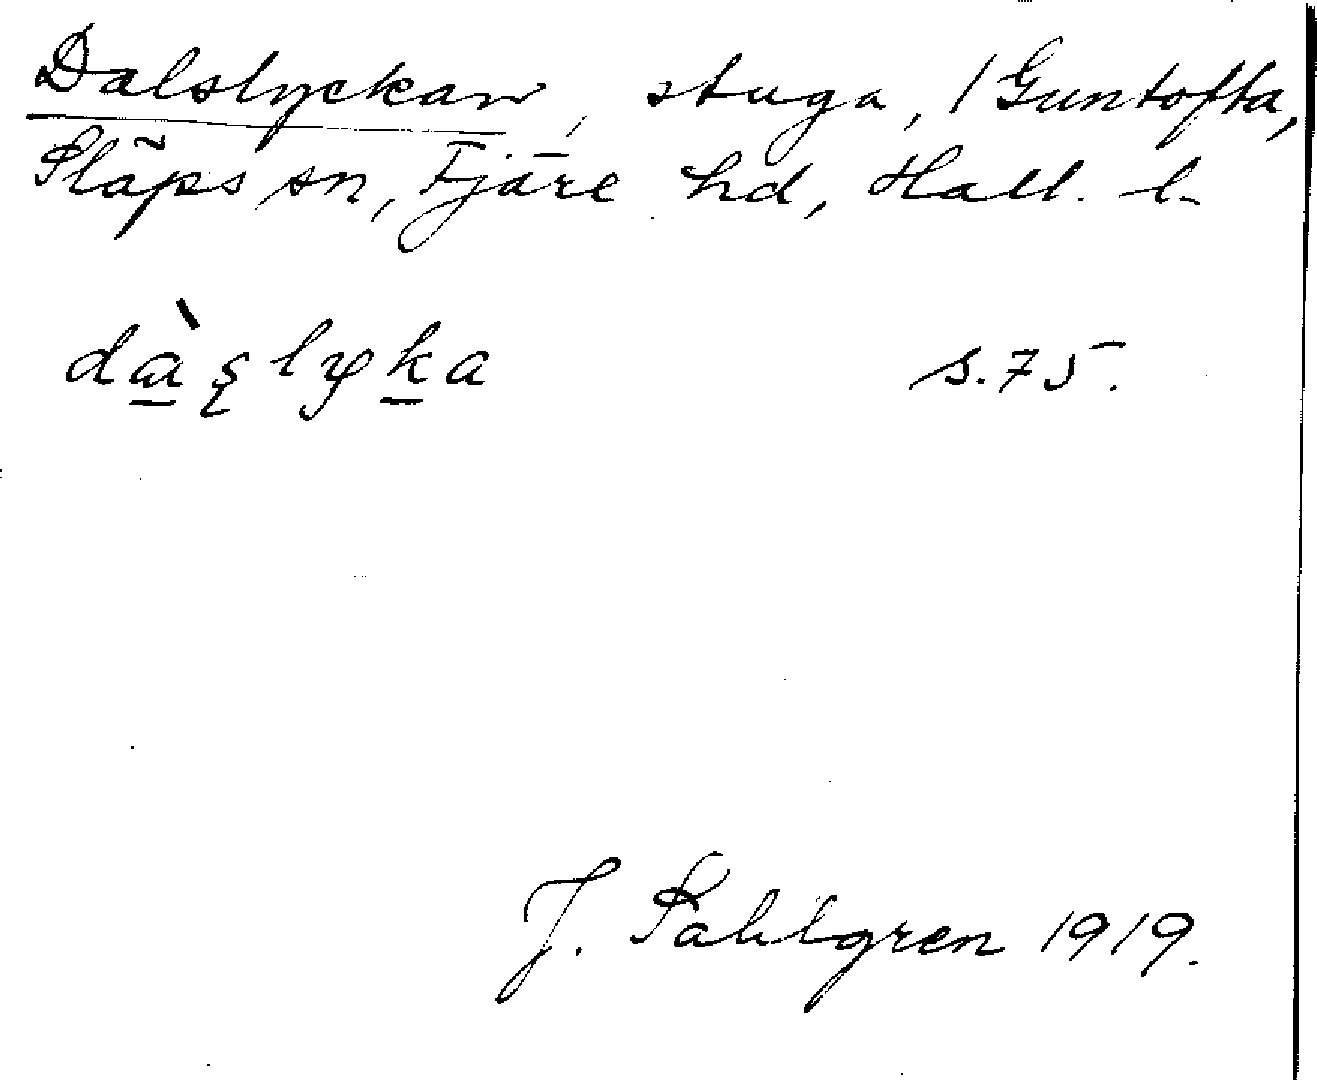 Dalslyckan, stuga, /Guntofta,
Släps sn, Fjäre hd, Hall. l.
dàşlyka s.75.
J. Sahlgren 1919.